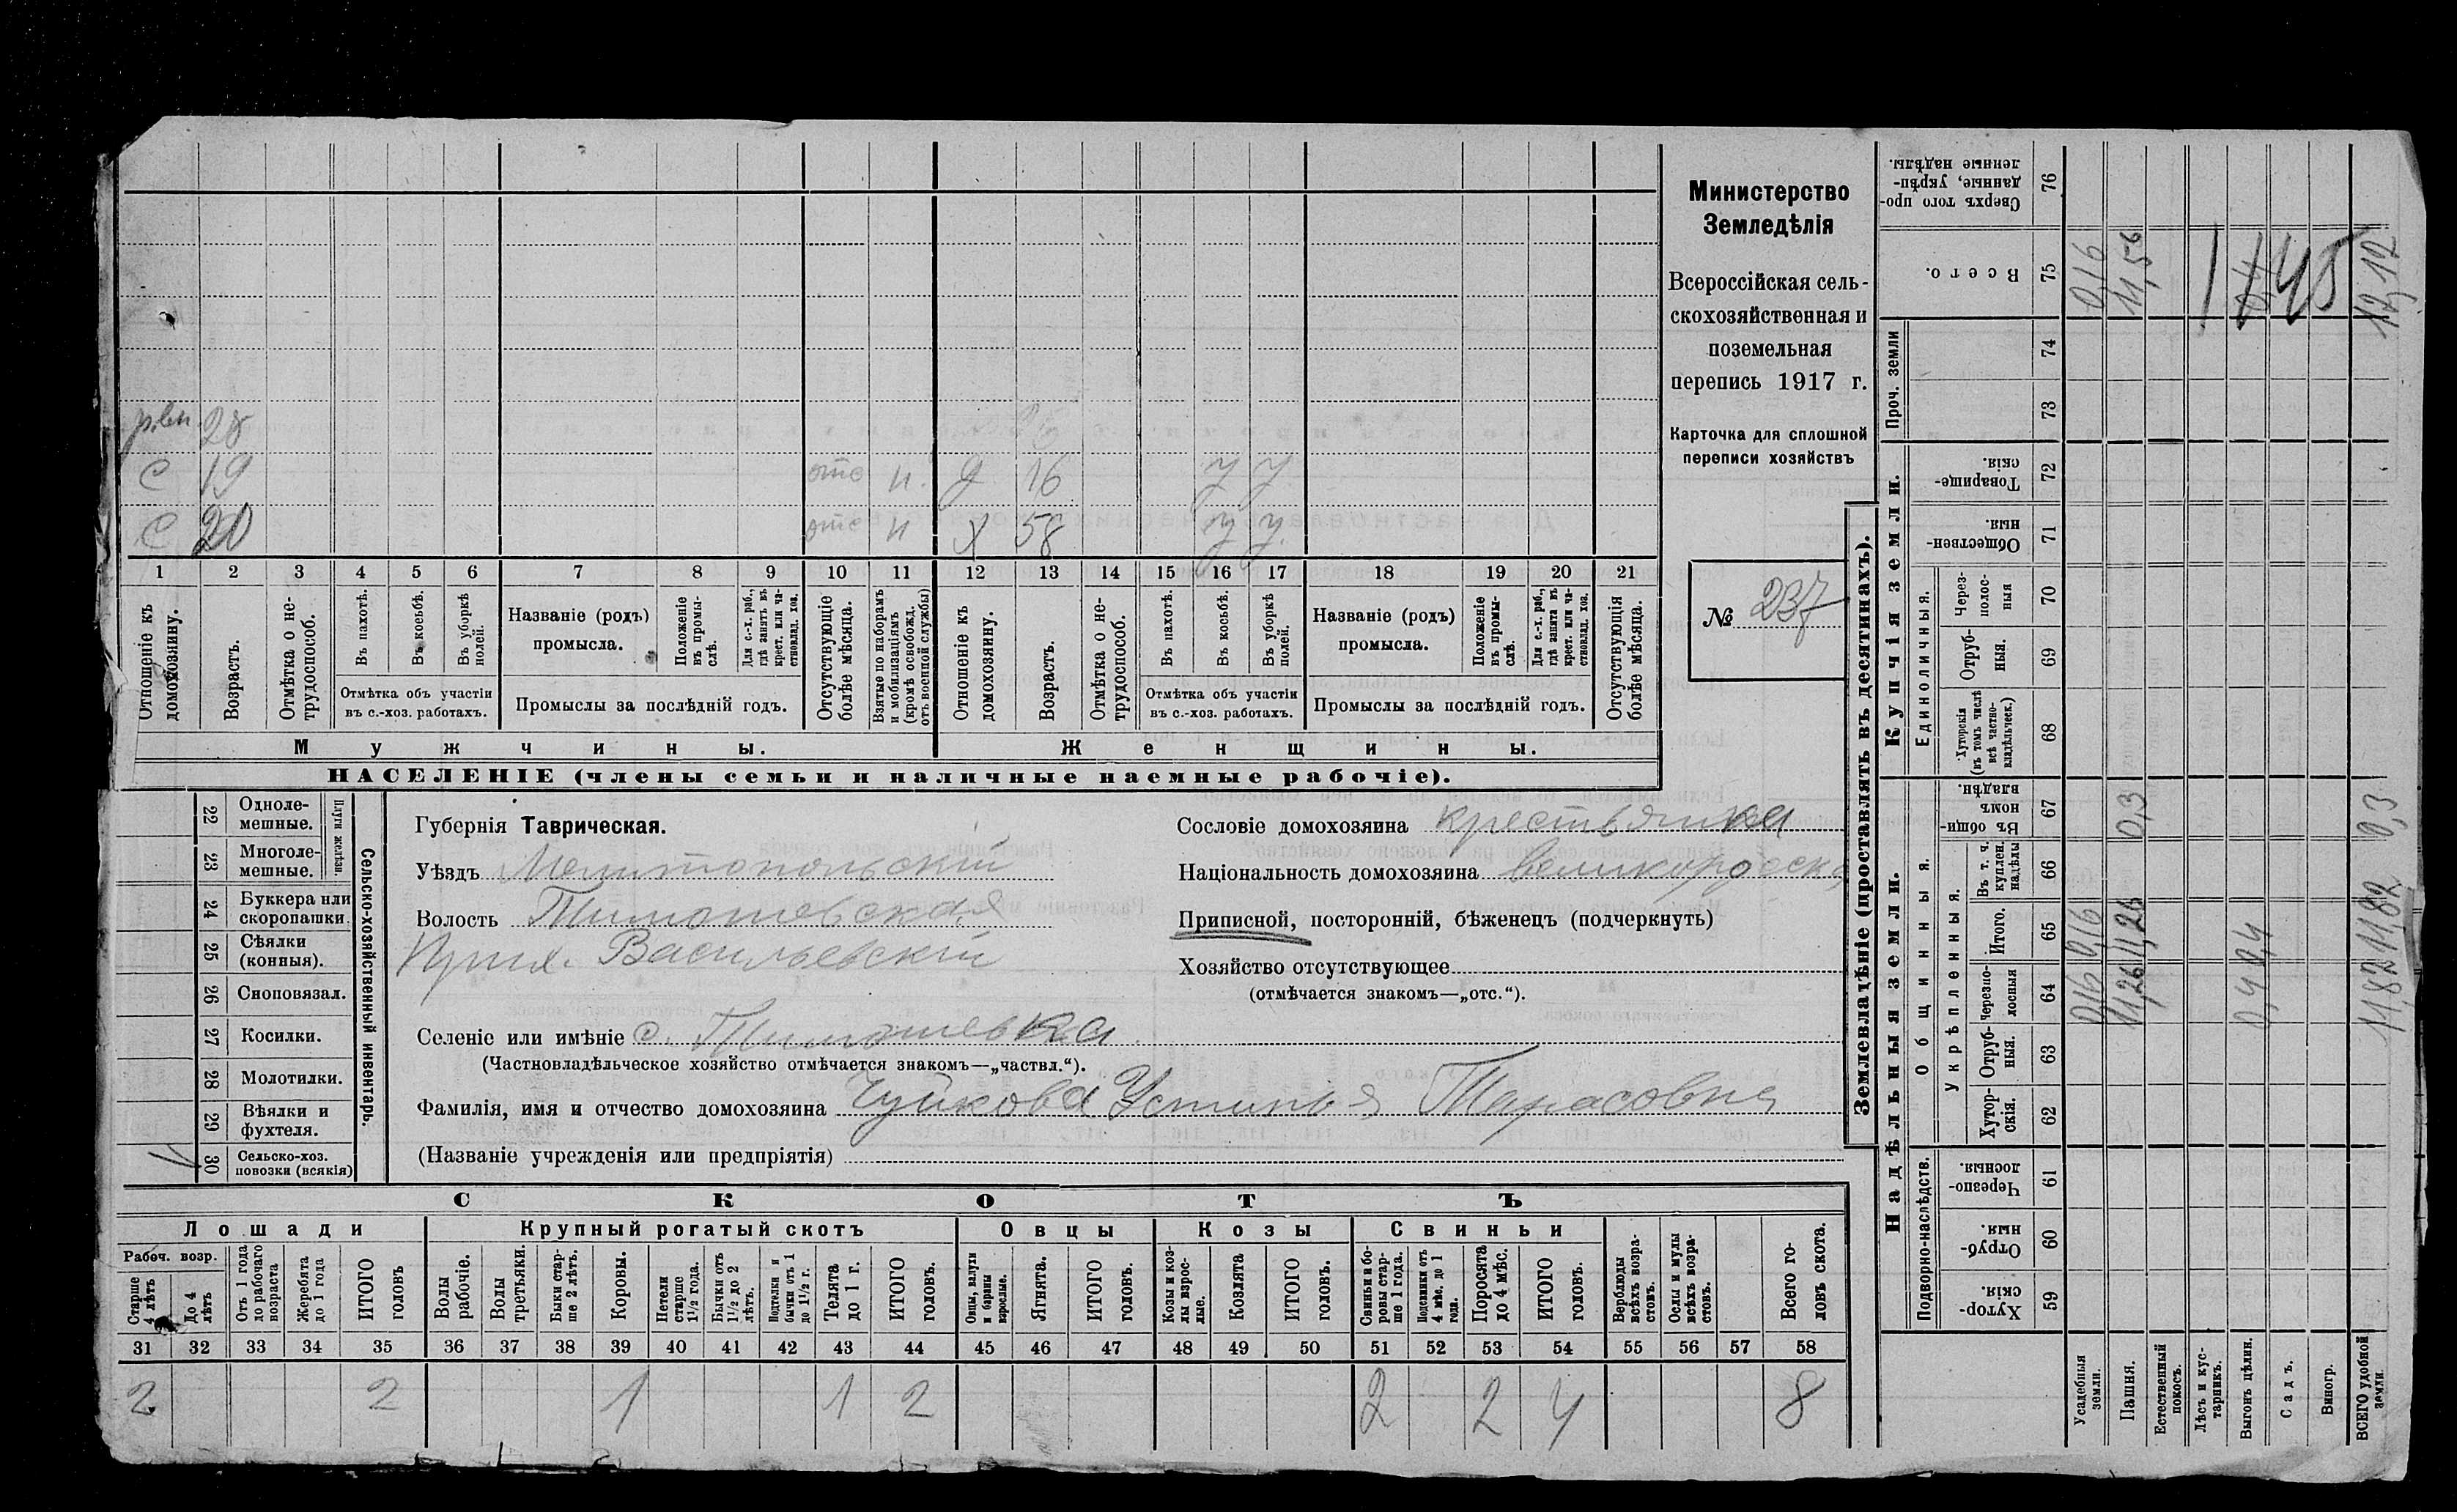 Министерство
Земледѣлія
Всероссійская сель-
скохозяйственная и
поземельная
перепись 1917 г.
Карточка для сплошной
переписи хозяйствъ
№ 237
28
с 19 отс н. д 16 у у
с 20 отс н х 58 у у
1 2 3 4 5 6 7 8 9 10 11 12 13 14 15 16 17 18 19 20 21
Отношеніе къ домохозяину.
Возрастъ.
Отмѣтка о не-
трудоспособ.
Въ пахотѣ.
Въ косьбѣ.
Въ уборкѣ
полей.
Отмѣтка объ участіи
въ с.-хоз. работахъ.
Названіе (родъ)
промысла.
Положеніе
въ промы-
слѣ.
Для с.-х. раб.,
гдѣ занятъ въ
крест. или ча-
стновлад. хоз.
Промыслы за послѣдній годъ.
Отсутствующіе
болѣе мѣсяца.
Взятые по наборамъ
и мобилизаціямъ
(кромѣ освобожд.
отъ военной службы)
Отношеніе къ
домохозяину.
Возрастъ.
Отмѣтка о не-
трудоспособ.
Въ пахотѣ.
Въ косьбѣ.
Въ уборкѣ
полей.
Отмѣтка объ участіи
въ с.-хоз. работахъ.
Названіе (родъ)
промысла.
Положеніе
въ промы-
слѣ.
Для с.-х. раб.,
гдѣ занята въ
крест. или ча-
стновлад. хоз.
Промыслы за послѣдній годъ.
Отсутствующія
болѣе мѣсяца.
Мужчины.
Женщины.
НАСЕЛЕНІЕ (члены семьи и наличные наемные рабочіе).
Сельско-хозяйственный инвентарь.
Плуги желѣзн.
22 Одноле-
мешные.
23 Многоле-
мешные.
24 Буккера или
скоропашки.
25 Сѣялки
(конныя).
26 Сноповязал.
27 Косилки.
28 Молотилки.
29 Вѣялки и
фухтеля.
30 Сельско-хоз.
повозки (всякія)
Губернія Таврическая.
Уѣздъ Мелитопольскій
Волость Тимошевская
Прих. Васильевскій
Селеніе или имѣніе с. Тимошевка
(Частновладѣльческое хозяйство отмѣчается знакомъ—„частвл.“).
Фамилія, имя и отчество домохозяина Чуйкова Устинья Тарасовна
(Названіе учрежденія или предпріятія)
Сословіе домохозяина крестьянка
Національность домохозяина великорросска
Приписной, посторонній, бѣженецъ (подчеркнуть)
Хозяйство отсутствующее
(отмѣчается знакомъ—„отс.“).
СКОТЪ
Лошади
Крупный рогатый скотъ
Овцы
Козы
Свиньи
Рабоч. возр.
Старше
4 лѣтъ
До 4
лѣтъ
Отъ 1 года
до рабочаго
возраста
Жеребята
до 1 года
ИТОГО
головъ
Волы
рабочіе.
Волы
третьяки.
Быки стар-
ше 2 лѣтъ.
Коровы.
Петели
старше
1½ года.
Бычки отъ
1½ до 2
лѣтъ.
Подтелки и
бычки отъ 1
до 1½ г.
Телята
до 1 г.
ИТОГО
головъ.
Овцы, валухи
и бараны
взрослые.
Ягнята.
ИТОГО
головъ.
Козы и коз-
лы взрос-
лые.
Козлята
ИТОГО
головъ.
Свиньи и бо-
ровы стар-
ше 1 года.
Подсвинки отъ
4 мѣс. до 1
года.
Поросята
до 4 мѣс.
ИТОГО
головъ.
Верблюды
всѣхъ возра-
стовъ.
Ослы и мулы
всѣхъ возра-
стовъ.
Всего го-
ловъ скота.
31 32 33 34 35 36 37 38 39 40 41 42 43 44 45 46 47 48 49 50 51 52 53 54 55 56 57 58
2 2 1 1 2 2 2 4 8
Землевладѣніе (проставлять въ десятинахъ).
Надѣльныя земли.
Купчія земли.
Проч. земли
Подворно-наслѣдств.
Общинныя.
Укрѣпленныя.
Единоличныя.
Хутор-
скія. 59
Отруб-
ныя. 60
Черезпо-
лосныя. 61
Хутор-
скія. 62
Отруб-
ныя. 63
Черезпо-
лосныя 64
Итого. 65
Въ т. ч.
куплен.
надѣлы 66
Въ общи-
номъ
владѣн. 67
Хуторскія
(въ томъ числѣ
всѣ частно-
владѣльческ.) 68
Отруб-
ныя. 69
Через-
полос-
ныя 70
Обществен-
ныя. 71
Товарище-
скія. 72
73
74
Всего. 75
Сверхъ того про-
данные, укрѣп-
ленные надѣлы. 76
Усадебныя
земли. 0,16 0,16 0,16
Пашня. 11,26 11,26 0,3 11,56
Естественный
покосъ.
Лѣсъ и кус-
тарникъ.
Выгонъ цѣлин. 0,4 0,4 0,4
Садъ.
Виногр.
ВСЕГО удобной
земли. 11,82 11,82 0,3 12,12